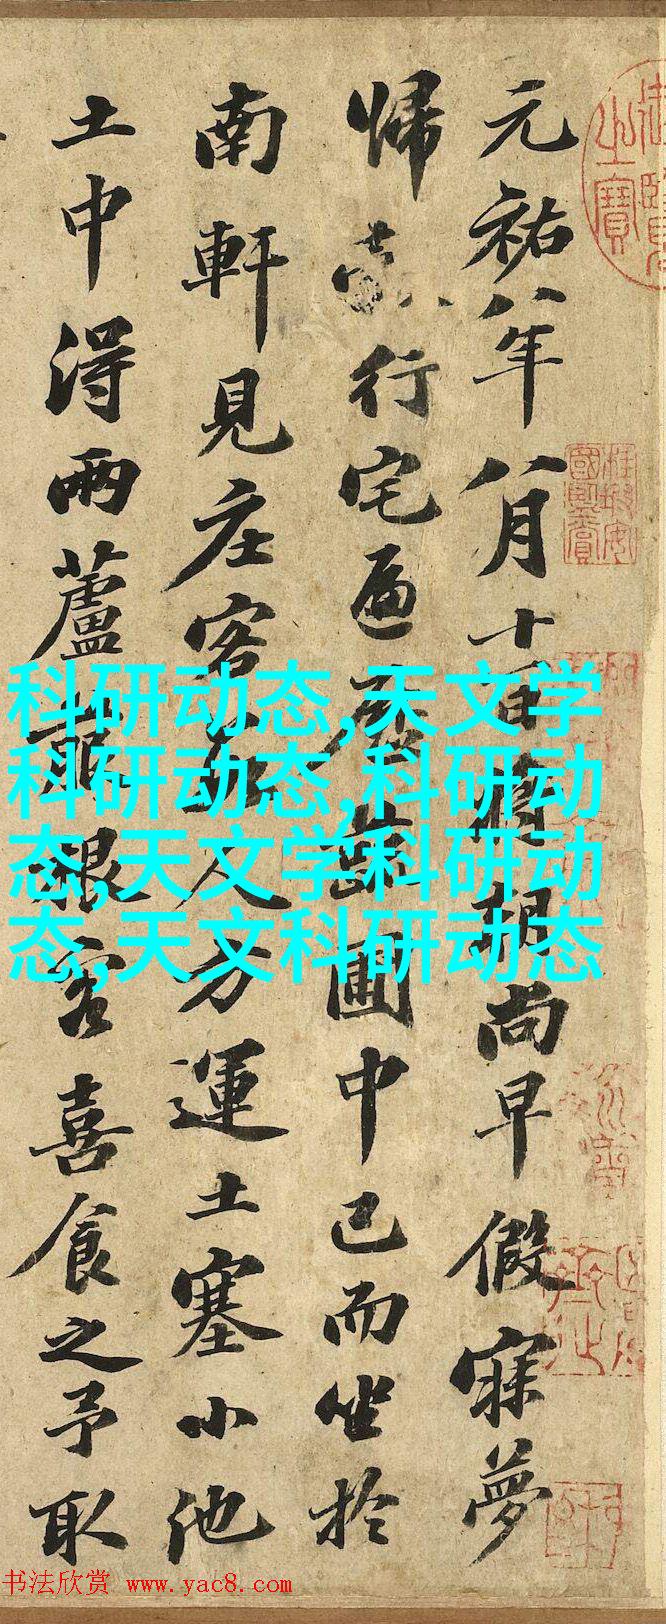 元祐八年八月十一日將朝尚早假寐夢
歸行宅遍歷蔬圃中已而坐於
南軒見庄客數人方運土塞小池
土中得兩蘆菔根客喜食之予取
科研动态,天文学
科研动态,科研动
态,天文学科研动
态,天文科研动态
御覽之寶
书法欣赏 www.yac8.com